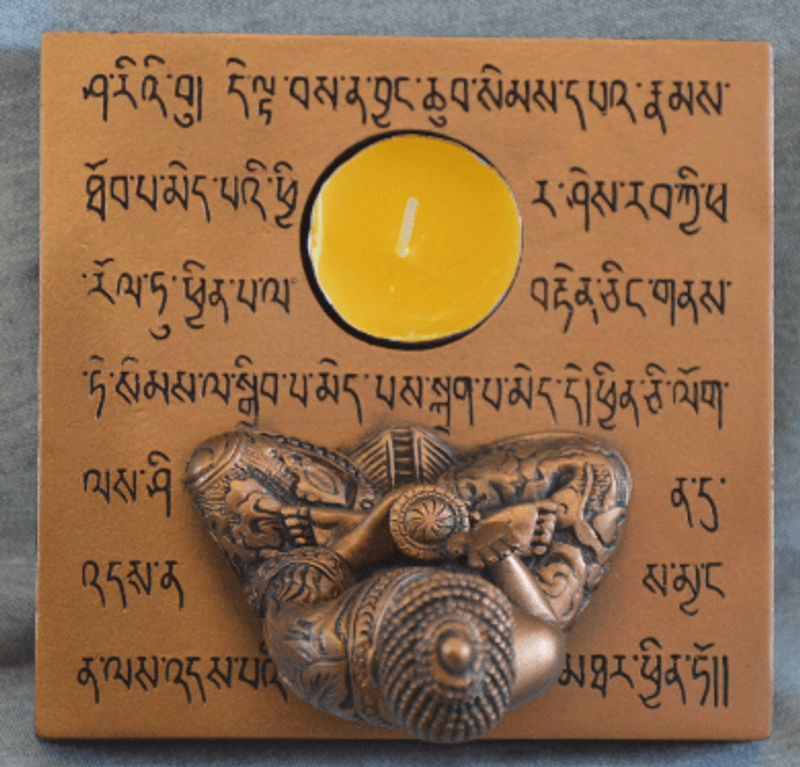 ཤ་རིའི་བུ། དེ་ལྟ་བས་ན་བྱང་ཆུབ་སེམས་དཔའ་རྣམས་
ཐོབ་པ་མེད་པའི་ཕྱི ར་ཤེས་རབ་ཀྱི་ཕ
་རོལ་ཏུ་ཕྱིན་པ་ལ་ བརྟེན་ཅིང་གནས་
ཏེ་སེམས་ལ་སྒྲིབ་པ་མེད་པས་སྐྲག་པ་མེད་དེ།ཕྱིན་ཅི་ལོག་
ལས་ཤི ན་ཏུ་
འདས་ན ས་མྱང
ན་ལས་འདས་པའི མཐར་ཕྱིན་ཏོ།།